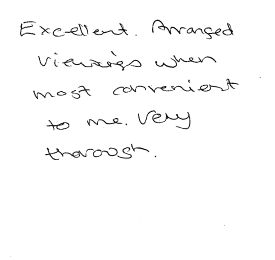 Excellent. Arranged
viewings when
most convenient
to me. Very
thorough.